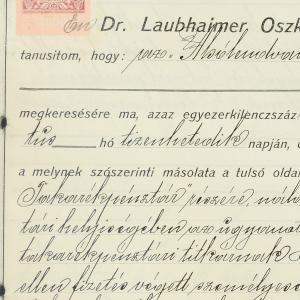 Én Dr. Laubhaimer, Oszk
tanusitom, hogy: az. Alsólendvai
megkeresésére ma, azaz egyezerkilenczszáz
tus hó tizenhetedik napján, d
a melynek szószerinti másolata a tulsó olda
Takarékpénztár" részére, nála
tári helyiségében az ugyanot
takarékpénztári titkárnak
ellen fizetés végett személyese